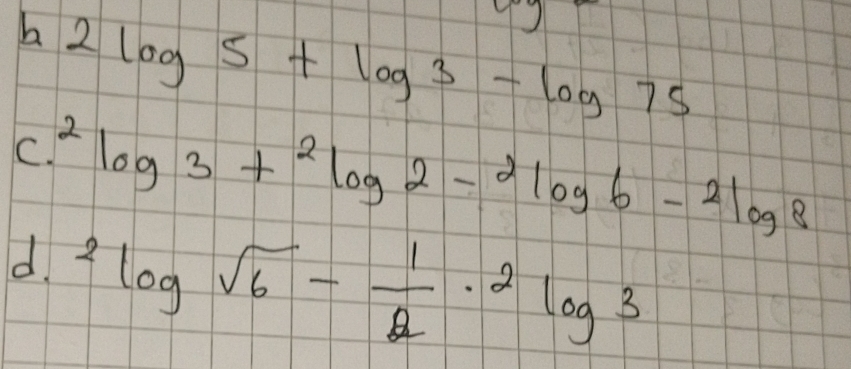 b 2 log 5 + log 3 - log 75
c. ² log 3 + ² log 2 - ² log 6 - ² log 8
d. ² log √6 - 1/2 · ² log 3